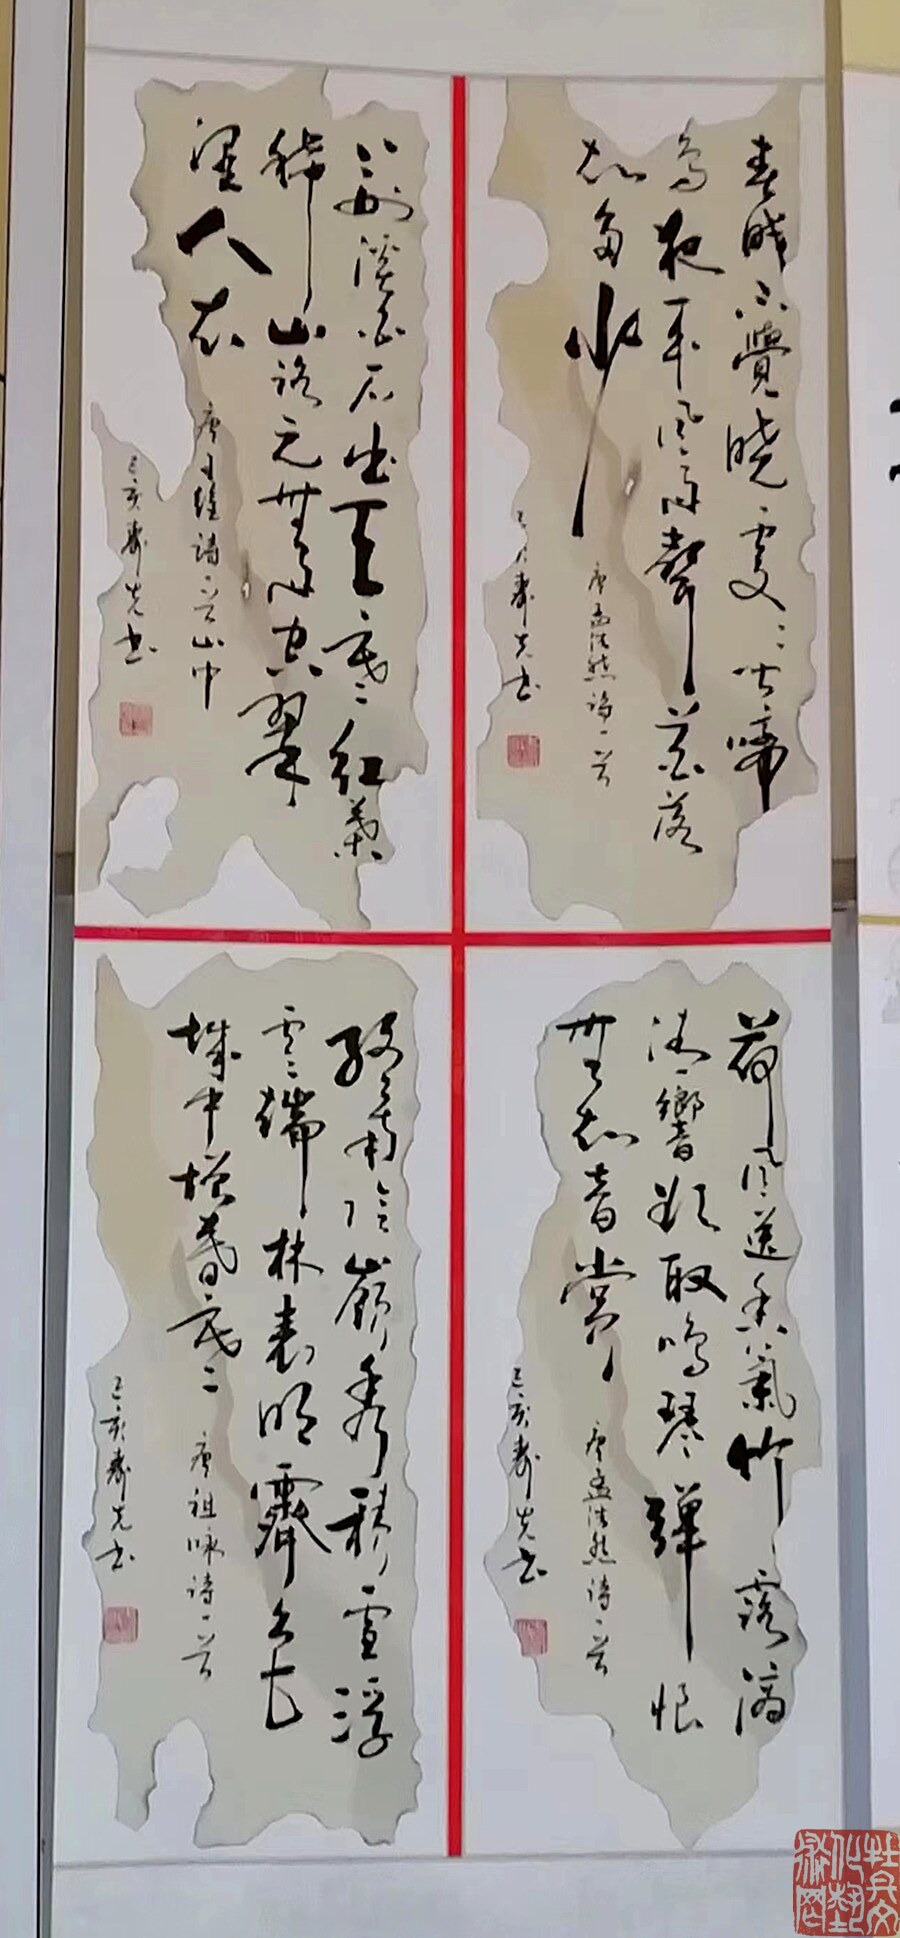 春眠不覺曉處〻聞啼
鳥夜来風雨聲花落
知多少
唐孟浩然詩一首
壽先書
荊溪白石出天寒紅葉
稀山路元無雨空翠
溼人衣
唐王維詩一首山中
己亥壽先書
荷風送香氣竹露滴
清響欲取鳴琴彈恨
無知音賞
唐孟浩然詩一首
己亥壽先書
終南陰嶺秀積雪浮
雲端林表明霽色
城中增暮寒
唐祖咏詩一首
己亥壽先書